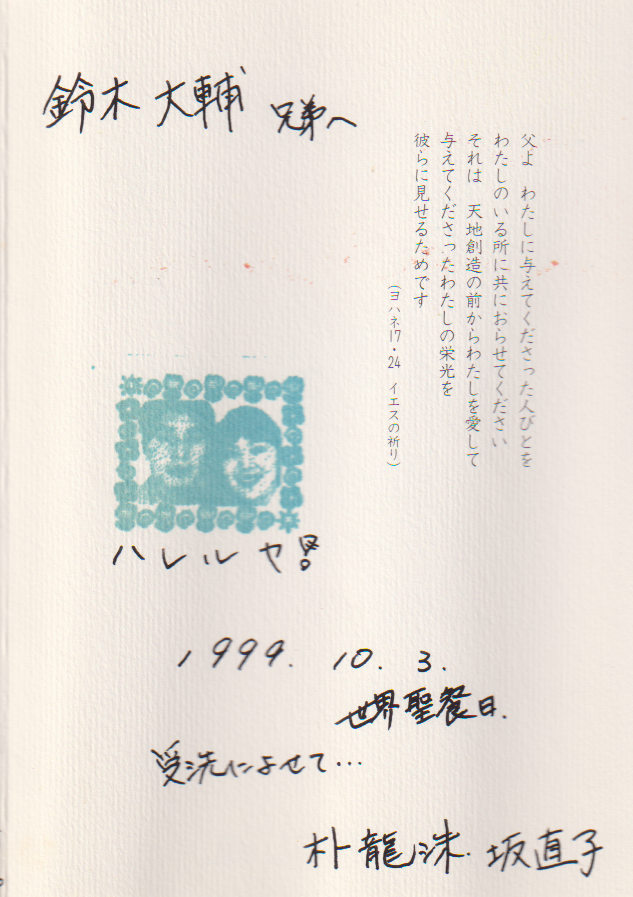 鈴木 大輔 兄弟へ
父よ わたしに与えてくださった人びとを
わたしのいる所に共におらせてください
それは 天地創造の前からわたしを愛して
与えてくださったわたしの栄光を
彼らに見せるためです
(ヨハネ17・24 イエスの祈り)
ハレルヤ!
1999. 10. 3.
世界聖餐日.
受洗によせて…
朴龍洙. 坂直子